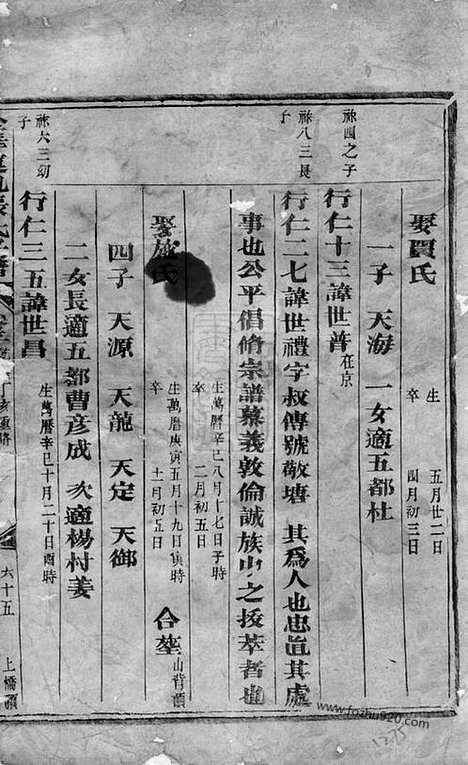 娶賈氏
生 五月廿二日
卒 四月初三日
一子 天海 一女適五都杜
祿四之子
行仁十三諱世普在京
祿八三長子
行仁二七諱世禮字叔傳號敬塘 其為人也忠直其處
事也公平倡脩宗譜慕義敦倫誠族中之拔萃者也
生萬曆辛巳八月十七日子時
卒 二月初五日
娶 氏
生萬曆庚寅五月十九日寅時
卒 十一月初五日
合塟山背頭
四子 天源 天龍 天定 天御
二女長適五都曹彥成 次適楊村姜
祿大三幼子
行仁三五諱世昌
生萬曆辛巳十月二十日酉時
六十五
上橋頭
www.fozhu920.com
1375